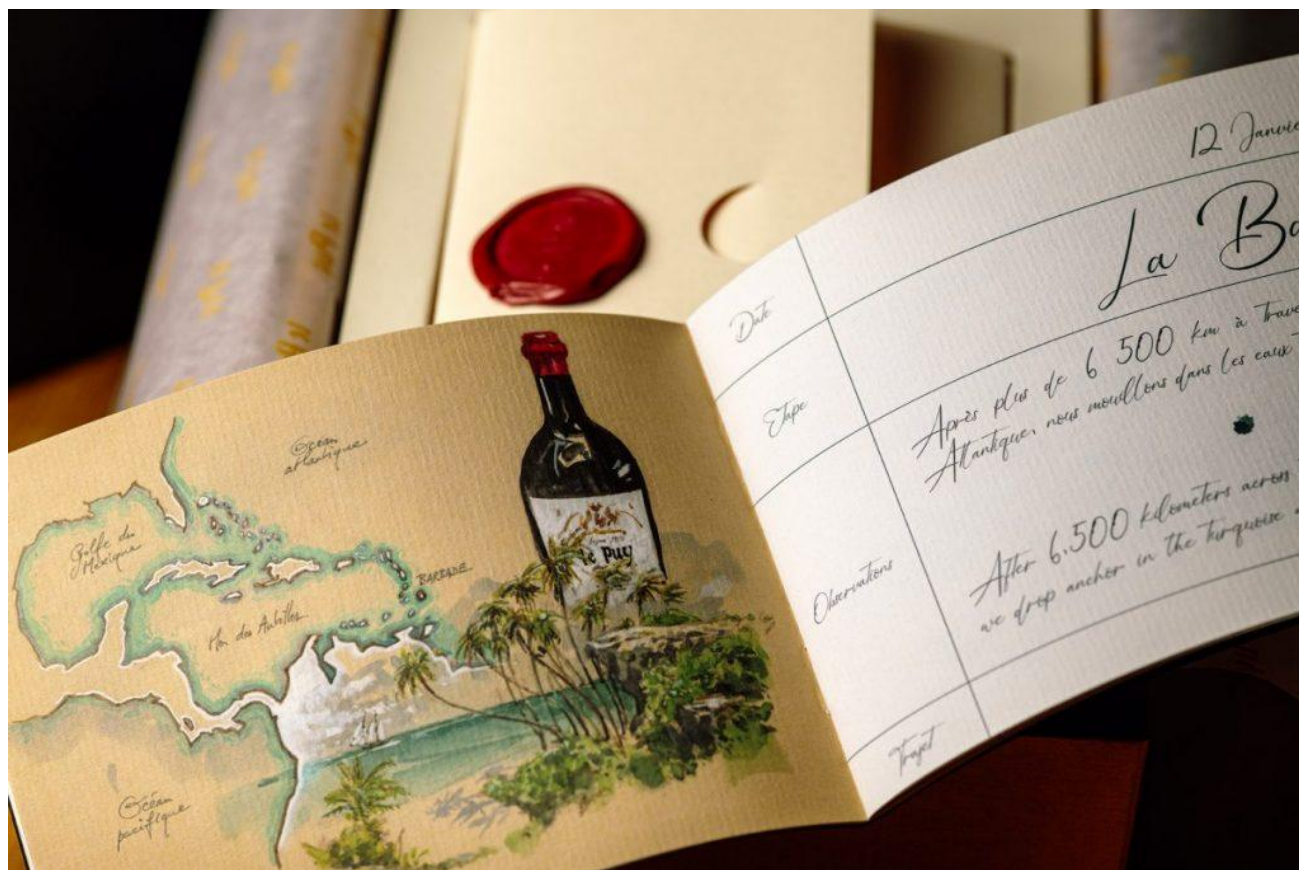 Océan
atlantique
Golfe du
Mexique
Mer des Antilles
BARBADE
Océan
pacifique
le PUY
12 Janvie
La Ba
Date
Etape
Observations
Trajet
Après plus de 6 500 km à trave
Atlantique, nous mouillons dans les eaux
After 6,500 kilometers across
we drop anchor in the turquoise